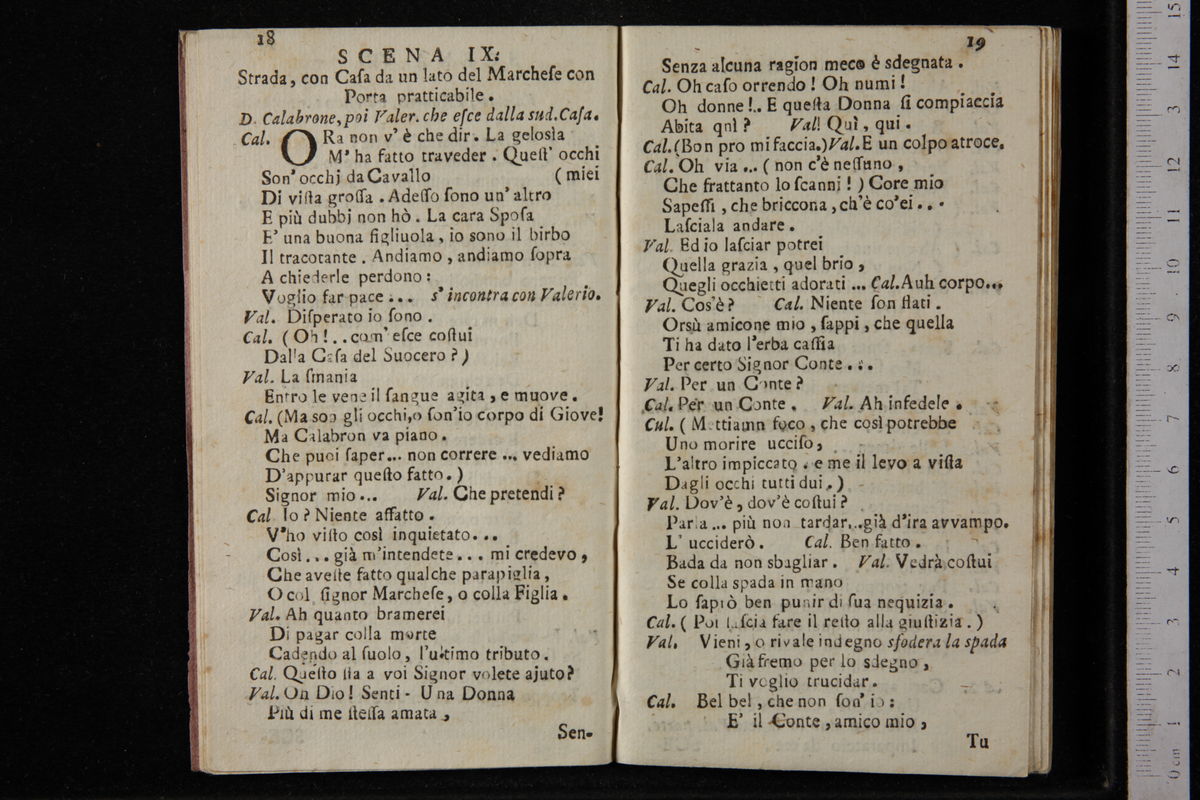 18
SCENA IX.
Strada, con Caſa da un lato del Marcheſe con
Porta pratticabile.
D. Calabrone, poi Valer. che eſce dalla sud. Caſa.
Cal. ORa non v' è che dir. La gelosìa
M' ha fatto traveder. Queſt' occhi
Son' occhj da Cavallo (miei
Di viſta groſſa. Adeſſo ſono un' altro
E più dubbj non hò. La cara Spoſa
E' una buona figliuola, io sono il birbo
Il tracotante. Andiamo, andiamo ſopra
A chiederle perdono:
Voglio far pace... s' incontra con Valerio.
Val. Diſperato io ſono.
Cal. (Oh!.. com' eſce coſtui
Dalla Caſa del Suocero?)
Val. La ſmania
Entro le vene il ſangue agita, e muove.
Cal. (Ma son gli occhi, o ſon' io corpo di Giove!
Ma Calabron va piano.
Che puoi ſaper... non correre... vediamo
D'appurar queſto fatto.)
Signor mio... Val. Che pretendi?
Cal Io? Niente affatto.
V'ho viſto così inquietato...
Così... già m'intendete... mi credevo,
Che aveſte fatto qualche parapiglia,
O col ſignor Marcheſe, o colla Figlia.
Val. Ah quanto bramerei
Di pagar colla morte
Cadendo al ſuolo, l'ultimo tributo.
Cal. Queſto ſia a voi Signor volete ajuto?
Val. Oh Dio! Senti - Una Donna
Più di me ſteſſa amata,
Sen-
19
Senza alcuna ragion meco è sdegnata.
Cal. Oh caſo orrendo! Oh numi!
Oh donne!.. E queſta Donna ſi compiaccia
Abita qnì? Val. Quì, qui.
Cal. (Bon pro mi faccia.) Val. E un colpo atroce.
Cal. Oh via... (non c'è neſſuno,
Che frattanto lo ſcanni!) Core mio
Sapeſſi, che briccona, ch'è co'ei...
Laſciala andare.
Val. Ed io laſciar potrei
Quella grazia, quel brio,
Quegli occhietti adorati... Cal. Auh corpo...
Val. Cos'è? Cal. Niente ſon flati.
Orsù amicone mio, ſappi, che quella
Ti ha dato l'erba caſſia
Per certo Signor Conte...
Val. Per un Conte?
Cal. Per un Conte. Val. Ah infedele.
Cul. (Mettiamn foco, che così potrebbe
Uno morire ucciſo,
L'altro impiccato. e me il levo a viſta
Dagli occhi tutti dui.)
Val. Dov'è, dov'è coſtui?
Parla... più non tardar... già d'ira avvampo.
L' ucciderò. Cal. Ben fatto.
Bada da non sbagliar. Val. Vedrà coſtui
Se colla spada in mano
Lo ſaprò ben punir di ſua nequizia.
Cal. (Poi laſcia fare il reſto alla giuſtizia.)
Val. Vieni, o rivale indegno sfodera la spada
Già fremo per lo sdegno,
Ti voglio trucidar.
Cal. Bel bel, che non ſon' io:
E' il Conte, amico mio,
Tu